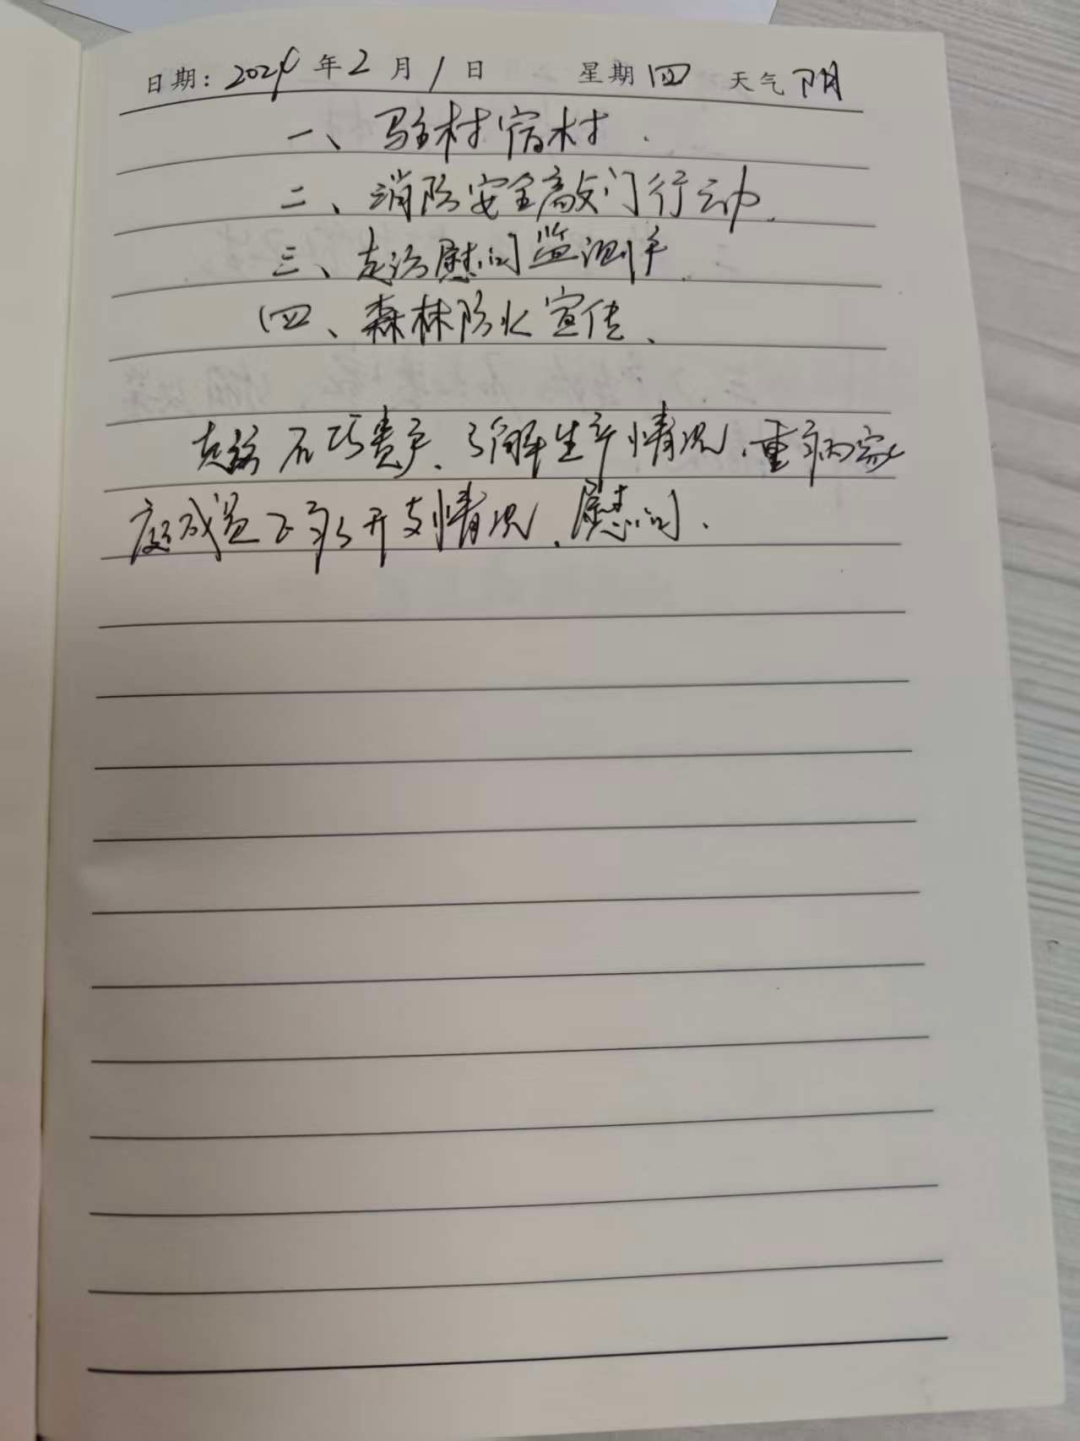 日期: 2024 年 2 月 1 日 星期 四 天气 阴
一、驻村宿村.
二、消防安全敲门行动.
三、走访慰问监测户
四、森林防火宣传、
走访石巧贵户、了解生产情况、重病家
庭成员医疗开支情况、慰问.